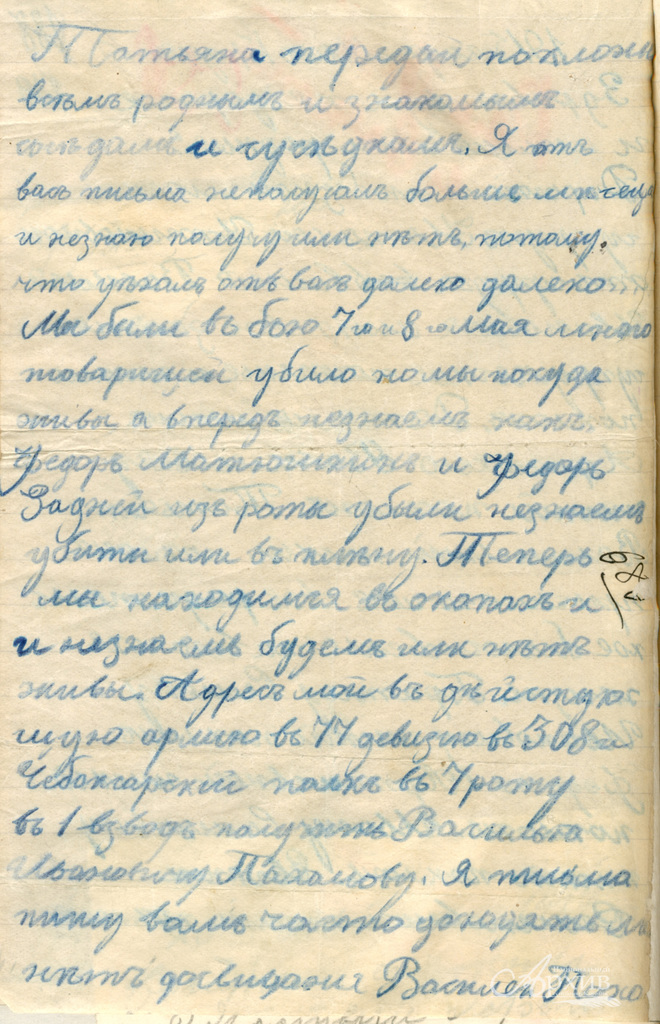 Татьяна передай поклоны
всѣмъ роднымъ и знакомымъ
и сусѣдкамъ. Я отъ
васъ письма неполучалъ больше месеца
и незнаю получу или нѣтъ, потому.
что уѣхалъ отъ васъ далеко далеко
Мы были въ бою 7го и 8го мая много
товарищей убило но мы покуда
живы а впередъ незнаемъ какъ.
Федоръ Матюшкинъ и Федоръ
Задней изъ роты убыли незнаемъ
убиты или въ плѣну. Теперь
мы находимся въ окопахъ и
и незнаемъ будемъ или нѣтъ
живы. Адресъ мой въ дѣйствую
щую армию въ 77 девизию въ 308й
Чебоксарский полкъ въ 7 роту
въ 1 взводъ получить Василью
Ивановичу Пахомову. Я письма
пишу вамъ часто доходятъ ли
нѣтъ досвиданиа Василей Пахо
684
АРХИВ